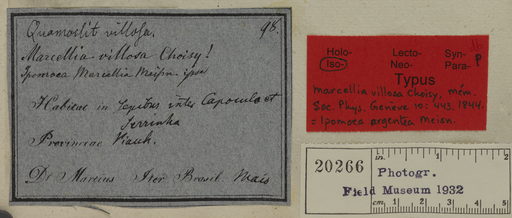 Quamoclit villosa. 98.
Marcellia villosa Choisy!
Ipomoea Marcellia Meisn. ipse
Habitat in Sepibus inter Capoculo et
Serrinha
Provinciae Piauh.
Dr Martius Iter Brasil. Maio
Holo- Lecto- Syn-
Iso- Neo- Para- P
Typus
marcellia villosa Choisy, mém.
Soc. Phys. Genève 10: 443. 1844.
= Ipomoea argentea Meisn.
20266
in. 1 2
Photogr.
Field Museum 1932
cm 1 2 3 4 5